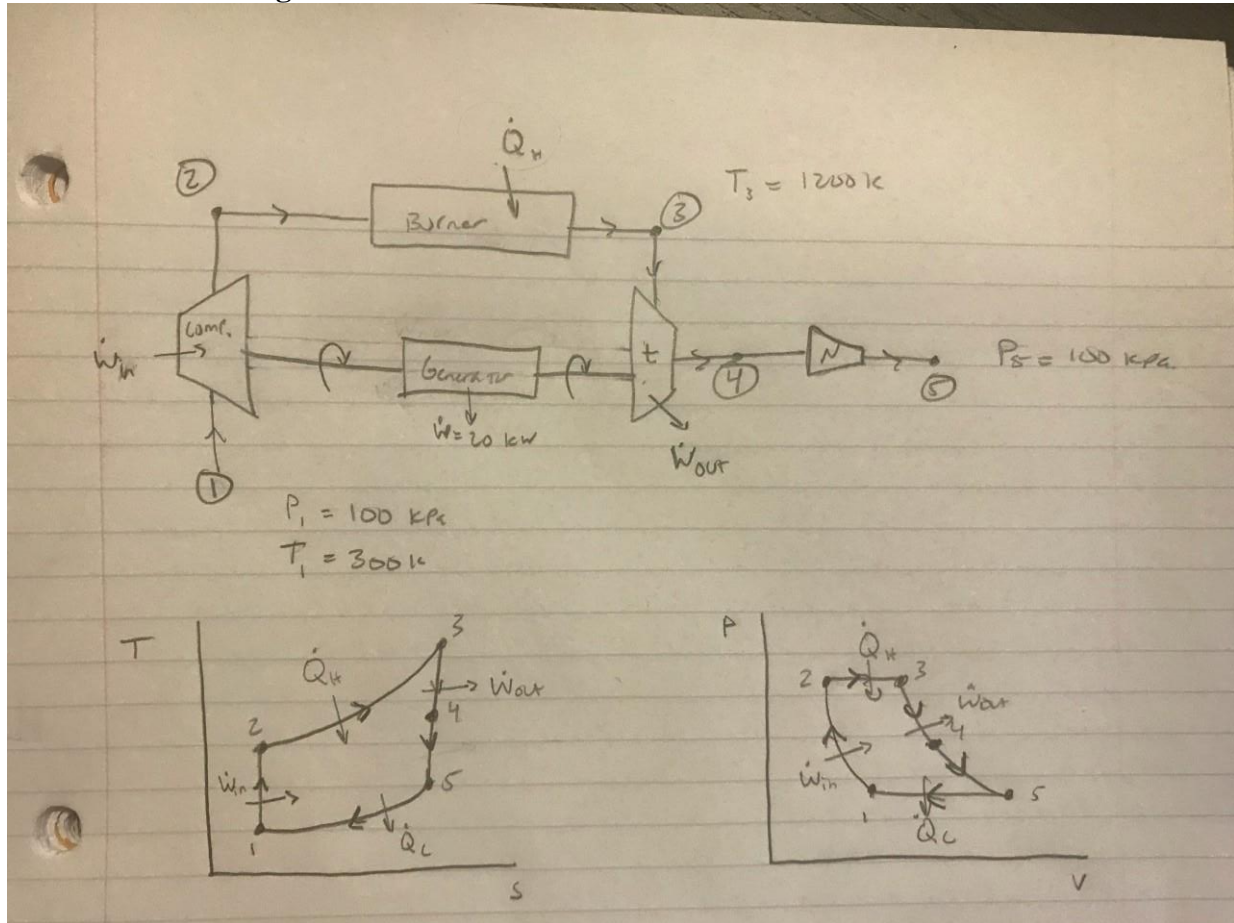 Q̇_H
②
T₃ = 1200 K
Burner
③
Comp.
Ẇ_in
Generator
t
④
N
⑤
P₅ = 100 kPa.
Ẇ = 20 kW
Ẇ_OUT
①
P₁ = 100 kPa
T₁ = 300 K
T
3
Q̇_H
Ẇ_OUT
2
4
Ẇ_in
5
1
Q̇_L
S
P
Q̇_H
2
3
Ẇ_OUT
4
Ẇ_in
1
5
Q̇_L
V